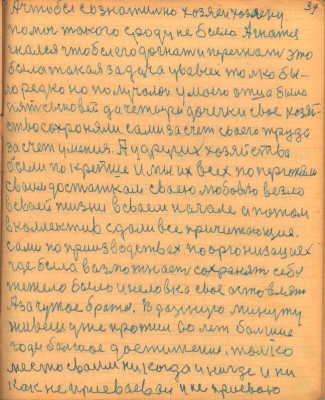 А чтобы сознательно хозяен хозяену
помог такого сроду не было А
гнался чтобы его догнать и перегнать это
была такая задача у всех только
редко но получалос у моего отца было
пять синовей да четыри дочечки свое хозяй-
ство сохроняли сами за счет своего труда
за счет умения. А у других хозяйства
были по крепще И мы их всех
своим достатком своею любовю везло
в своей жизни в своем начале и потом
в коллектив сдали все причитающия.
сами по производствах по организациях
где была возможност сохранят себя
тежело было и неловко свое оставлят
А за чужое братя. В данную минуту
живеш уже прожил 60 лет
годы болшое достижение. толко
место своим никогда и нигде и ни
как не приеваевал и не